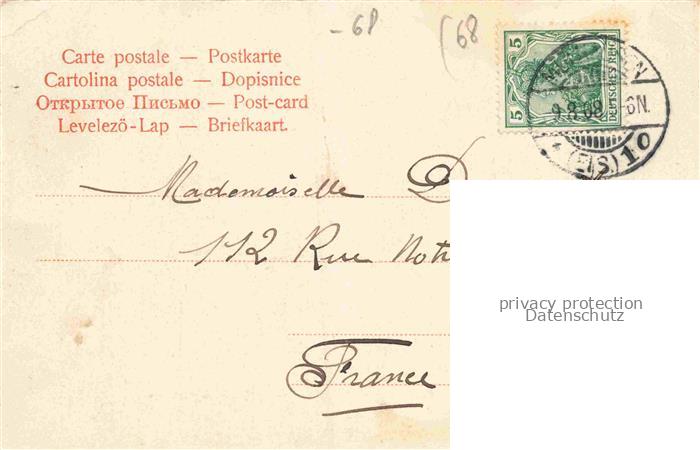 -68 (68
Carte postale — Postkarte
Cartolina postale — Dopisnice
Открытое Письмо — Post-card
Levelezö-Lap — Briefkaart.
5 DEUTSCHES REICH 5
9.8.08 -6N.
* (ELS) 10
Mademoiselle D
112 Rue Notr
France
privacy protection
Datenschutz